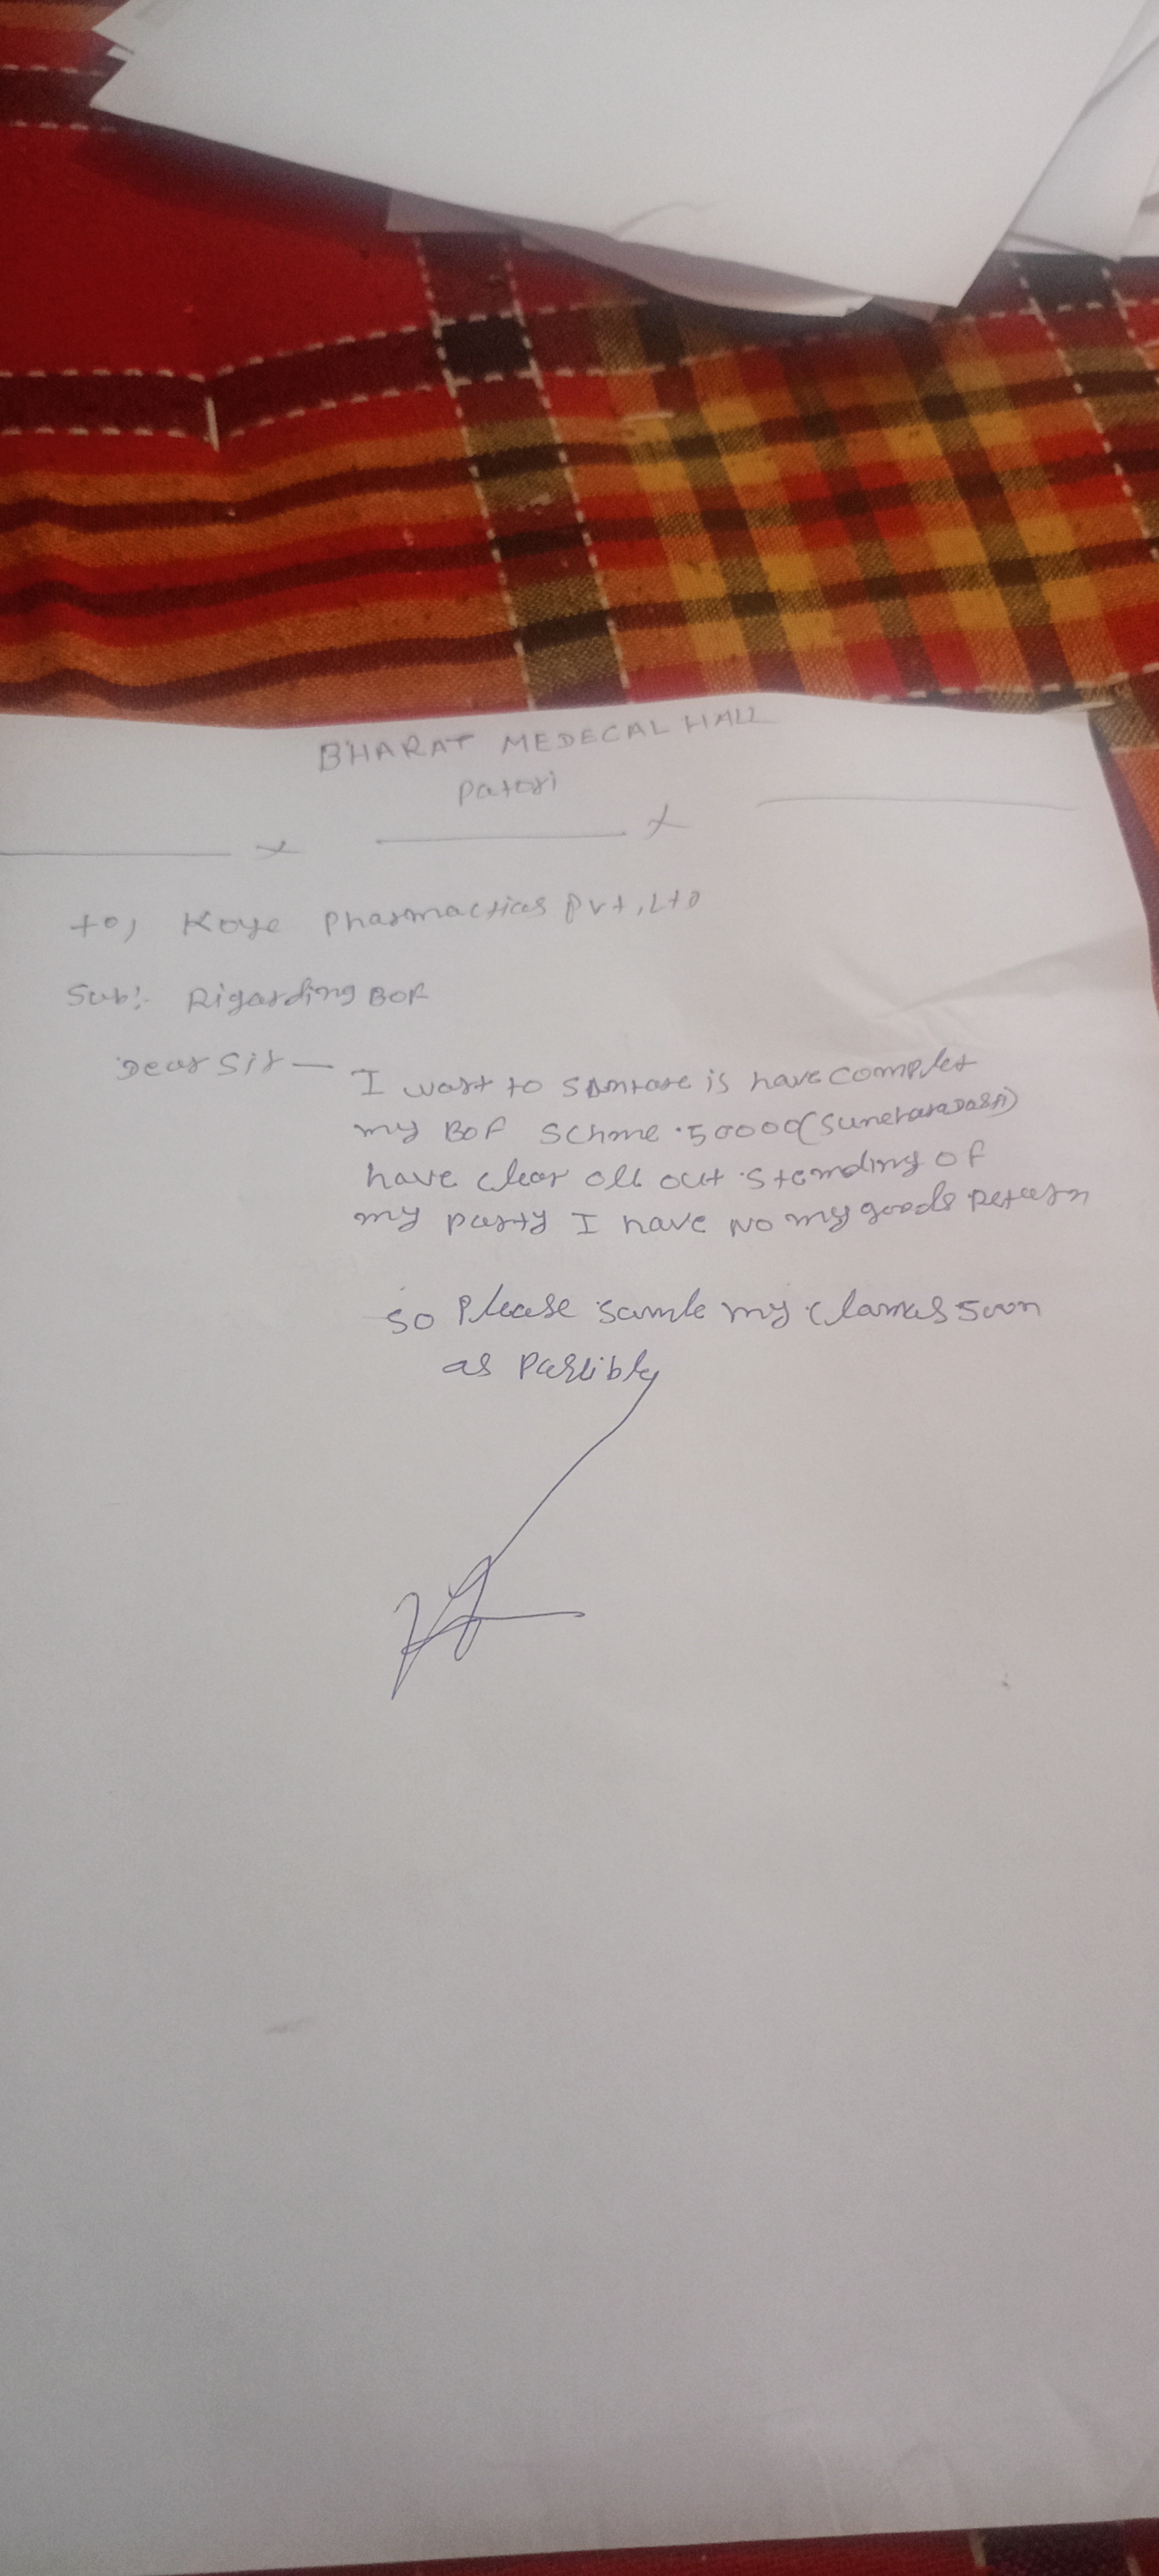 BHARAT MEDECAL HALL
Patori
to, Koye Pharmacticas Pvt, Ltd
Sub:- Rigarding BOF
Dear Sir — I want to is have complet
my BOF Schme 50000
have clear all out standing of
my party I have No my goods Return
so Please my clames soon
as